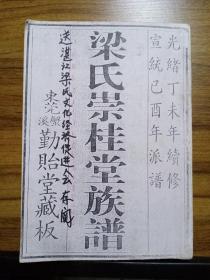 光緒丁未年續修
宣統己酉年派譜
梁氏崇桂堂族譜
送湛江梁氏文化經濟促進会存閱
勤貽堂藏板